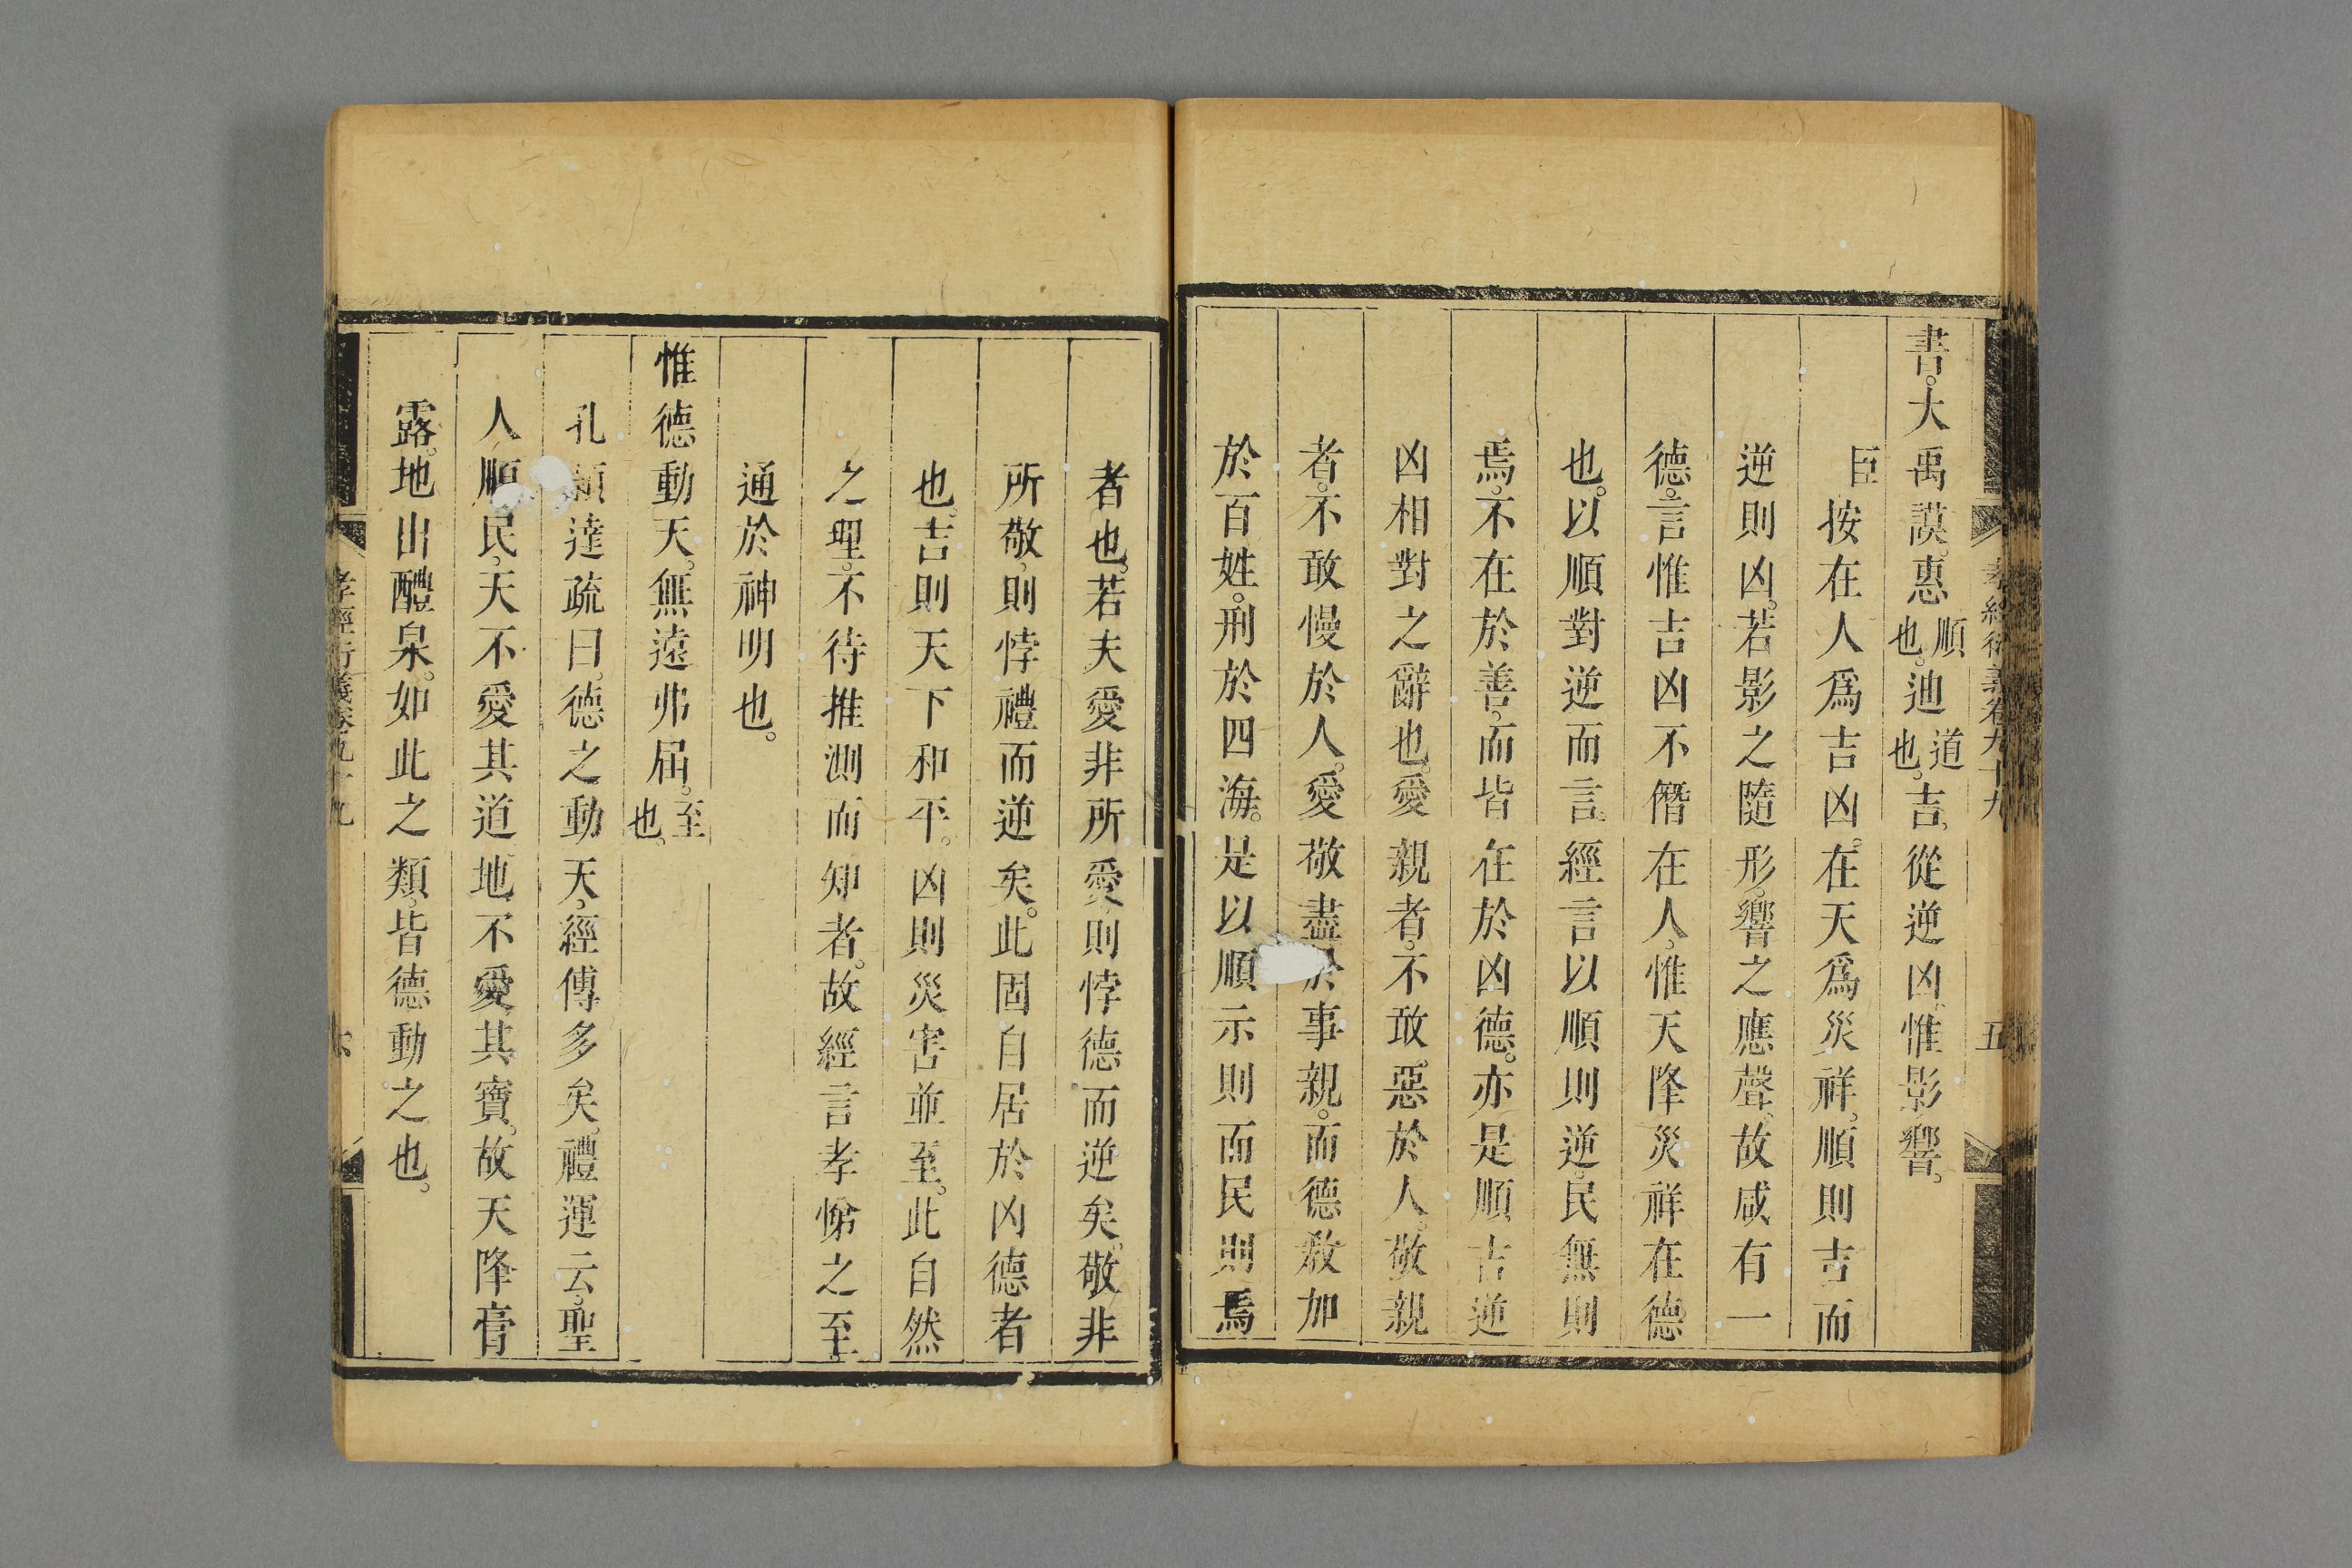 孝經衍義卷九十九 五
書。大禹謨。惠順也。迪道也。吉。從逆凶。惟影響。
臣按在人爲吉凶。在天爲災祥。順則吉而
逆則凶。若影之隨形。響之應聲。故咸有一
德。言惟吉凶不僭在人。惟天降災祥在德
也。以順對逆而言。經言以順則逆。民無則
焉。不在於善。而皆在於凶德。亦是順吉逆
凶相對之辭也。愛親者。不敢惡於人。敬親
者。不敢慢於人。愛敬盡於事親。而德敎加
於百姓。刑於四海。是以順示則而民則焉
者也。若夫愛非所愛則悖德而逆矣。敬非
所敬。則悖禮而逆矣。此固自居於凶德者
也。吉則天下和平。凶則災害並至。此自然
之理。不待推測而知者。故經言孝悌之至。
通於神明也。
惟德動天。無遠弗屆。至也。
孔穎達疏曰。德之動天。經傳多矣。禮運云。聖
人順民。天不愛其道。地不愛其寶。故天降膏
露。地出醴泉。如此之類。皆德動之也。
孝經衍義卷九十九 六